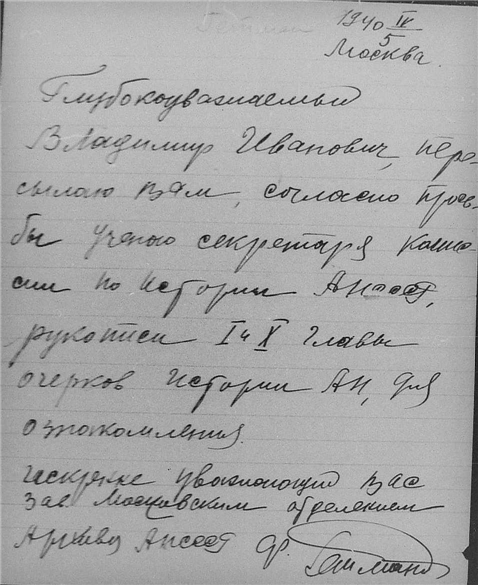 1940 IV/5
Москва.
Глубокоуважаемый
Владимир Иванович, пере-
сылаю Вам, согласно прось-
бы ученого секретаря Комис-
сии по Истории АНСССР,
рукописи I и X главы
очерков Истории АН, для
ознакомления.
Искренне уважающий Вас
Зав. Московским отделением
Архива АНСССР Ф.